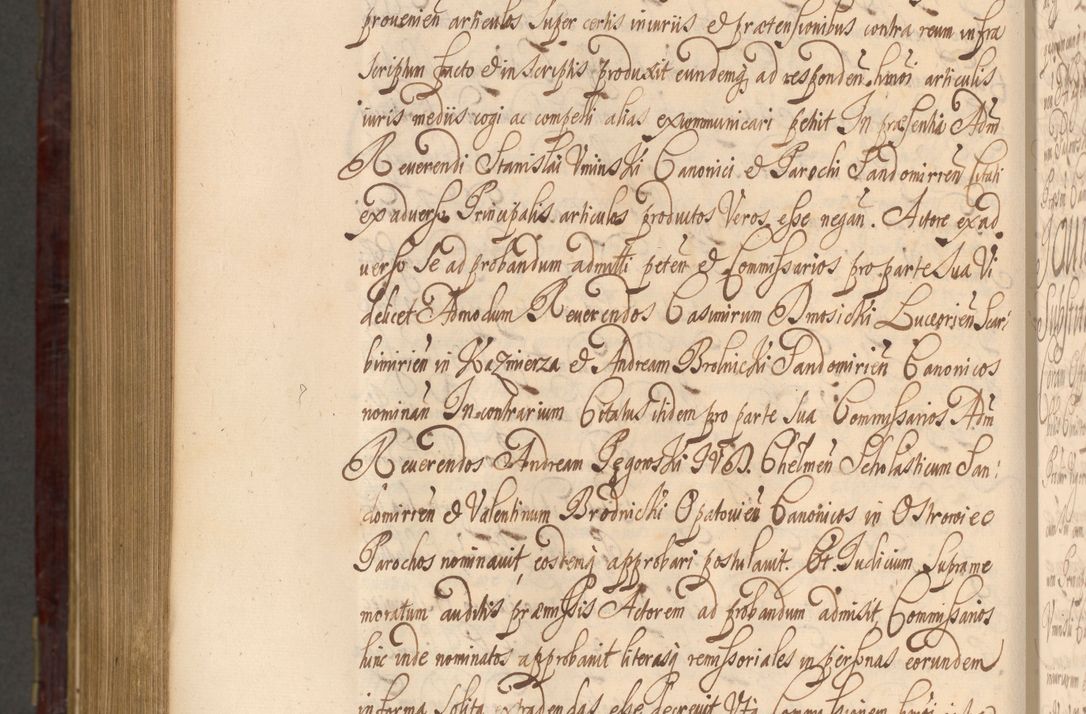 provenien articulos super certis iniuriis et prætensionibus contra reum infra
scriptum facto et in scriptis produxit eundemq ad responden hmoi articulis
iuris mediis cogi ac compelli alias excommunicari petiit In præsentia Adm
Reuerendi Stanislai Uminski Canonici et Parochi Sandomirien Citati
ex aduerso Principalis articulos productos Veros esse negan. Actore ex ad
uerso se ad probandum admitti peten et Commissarios pro parte sua Vi
delicet Admodum Reuerendos Casimirum Bmosicki Luceorien Scar
bimirien in Kazimierza et Andream Brolnicki Sandomirien Canonicos
nominan In contrarium Citatus itidem pro parte sua Commissarios Adm
Reuerendos Andream Pęgowski IVD. Chelmen Scholasticum San:
domirien et Valentinum Brodnicki Opatouien Canonicos in Ostrowiec
Parochos nominauit, eosdemq approbari postulauit. Et Iudicium Supramе
moratum auditis præmissis Actorem ad probandum admisit Commissarios
hinc inde nominatos approbauit literasq remissoriales in personas eorundem
in forma solita extradendas esse decreuit Vti